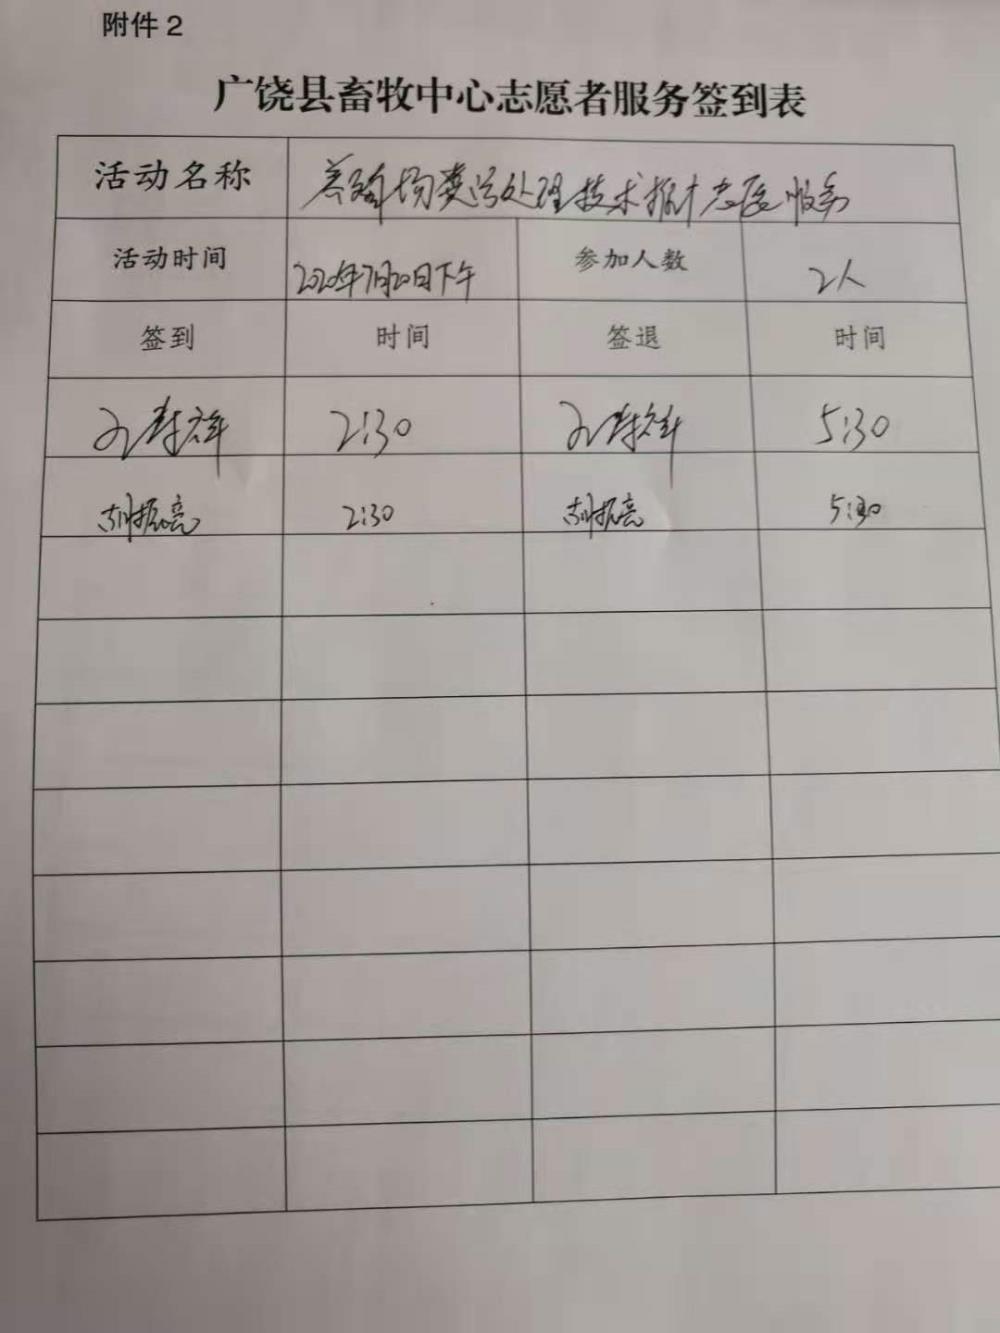 附件2
广饶县畜牧中心志愿者服务签到表
活动名称 养殖场粪污处理技术推广志愿服务
活动时间 2020年7月20日下午 参加人数 2人
签到 时间 签退 时间
2:30 5:30
胡振亮 2:30 胡振亮 5:30